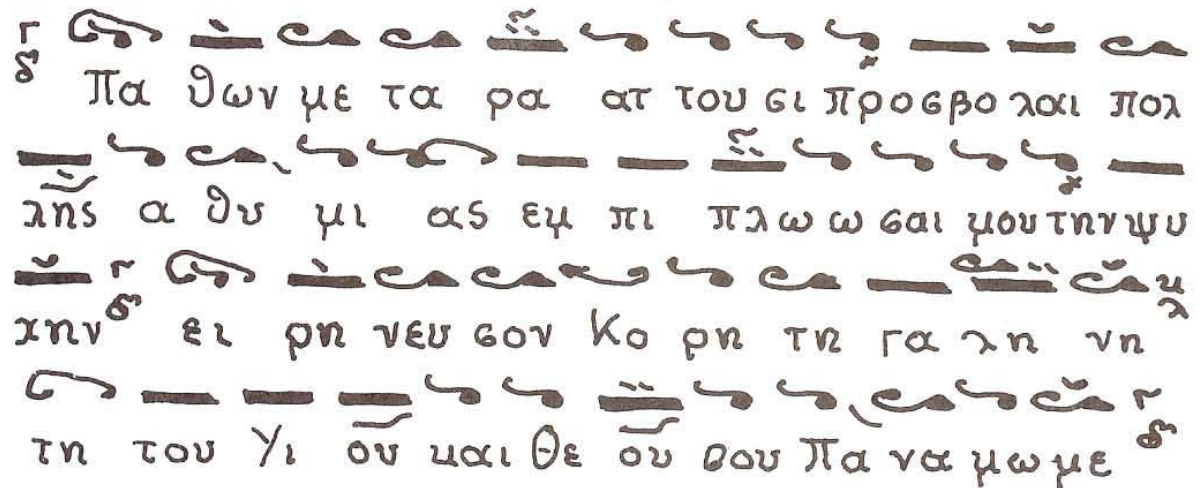 Πα θων με τα ρα ατ του σι προσβο λαι πολ
λης α θυ μι ας εμ πι πλω ω σαι μου την ψυ
χην ει ρη νευ σον Κο ρη τη γα λη νη
τη του Υι ου και Θε ου σου Πα να μω με